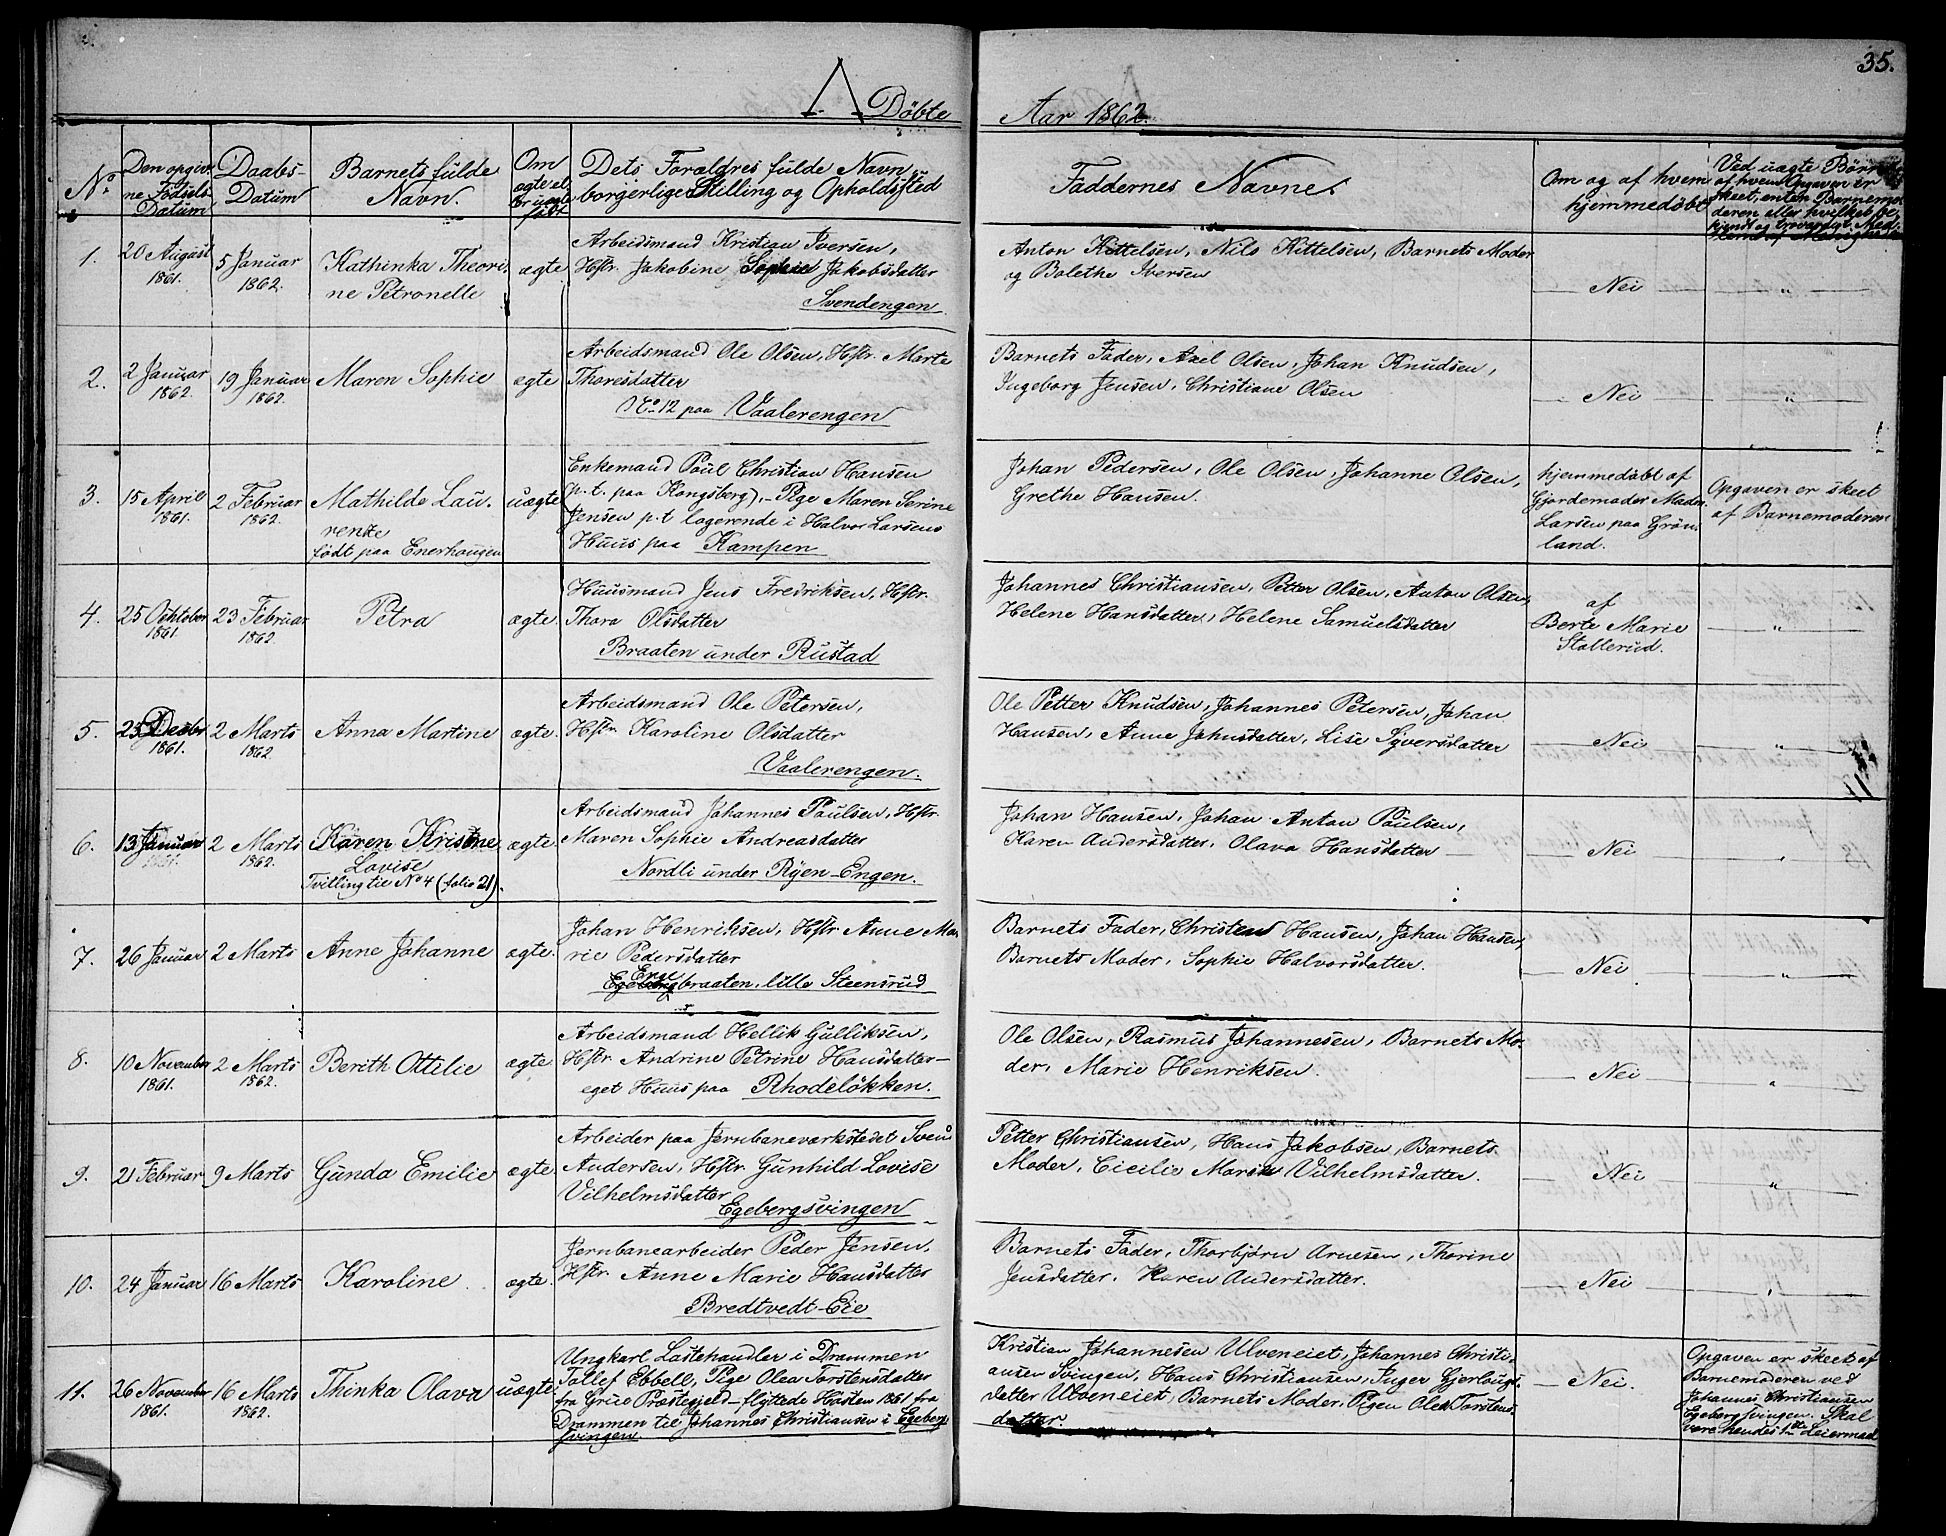 35.
A. Døbte
Aar 1862.
No
Den opgiv-
ne Fødsels
Datum
Daabs-
Datum
Barnets fulde
Navn.
Om
ægte el.
født
Dets Forældres fulde Navn,
borgerlige Stilling og Opholdssted
Faddernes Navne.
Om og af hvem
hjemmedøbt
Ved uægte Børn
af hvem Opgaven er
skeet, enten Barnemo-
deren eller hvilket be-
kjendt og troværdigt Med-
lem af Menigheden
1.
20 August
1861.
5 Januar
1862.
Kathinka Theori-
ne Petronelle
ægte
Arbeidsmand Kristian Iversen,
Hstr. Jakobine Sophie Jakobsdatter
Svendengen.
Anton Kittelsen, Nils Kittelsen, Barnets Moder
og Bolethe Iversen
Nei
"
2.
2 Januar
1862.
19 Januar
1862.
Maren Sophie
ægte
Arbeidsmand Ole Olsen, Hstr. Marte
Thoresdatter
No 12 paa Vaalerengen
Barnets Fader, Axel Olsen, Johan Knudsen,
Ingeborg Jensen, Christiane Olsen
Nei
"
3.
15 April
1861.
2 Februar
1862.
Mathilde Lau-
rentze
født paa Enerhougen
uægte
Enkemand Poul Christian Hansen
(p.t. paa Kongsberg), - Pige Maren Serine
Jensen p.t logerende i Halvor Larsens
Huus paa Kampen
Johan Pedersen, Ole Olsen, Johanne Olsen,
Grethe Hansen.
hjemmedøbt af
Gjordemoder Madm
Larsen paa Grøn-
land.
Opgaven er skeet
af Barnemoderen
4.
25 Ochtober
1861.
23 Februar
1862.
Petra
ægte.
Huusmand Jens Fredriksen, Hstr.
Thora Olsdatter
Braaten under Rustad
Johannes Christiansen, Petter Olsen, Anton Olsen,
Helene Hansdatter, Helene Samuelsdatter
af
Berte Marie
Stallerud.
"
5.
25 Decbr
1861.
2 Marts
1862
Anna Martine
ægte.
Arbeidsmand Ole Petersen,
Hstr. Karoline Olsdatter
Vaalerengen.
Ole Petter Knudsen, Johannes Petersen, Johan
Hansen, Anne Johnsdatter, Lise Syversdatter
Nei
"
6.
13 Januar
1861.
2 Marts
1862.
Karen Kristine
Lovise
Tvilling til No 4 (folio 21).
ægte
Arbeidsmand Johannes Poulsen, Hstr.
Maren Sophie Andreasdatter
Nordli under Ryen-Engen.
Johan Hansen, Johan Anton Poulsen,
Karen Andersdatter, Olava Hansdatter
Nei
"
7.
26 Januar
2 Marts
Anne Johanne
ægte.
Johan Henriksen, Hstr Anne Ma-
rie Pedersdatter
Enge
Egebergbraaten, lille Steensrud
Barnets Fader, Christen Hansen, Johan Hansen,
Barnets Moder, Sophie Halvorsdatter.
Nei
"
8.
10 November
1861.
2 Marts
1862.
Berith Ottilie
ægte.
Arbeidsmand Hellik Gulliksen,
Hstr Andrine Petrine Hansdatter-
eget Huus paa Rhodeløkken.
Ole Olsen, Rasmus Johannesen, Barnets Mo-
der, Marie Henriksen.
Nei
"
9.
21 Februar
9 Marts
Gunda Emilie
ægte
Arbeider paa Jernbaneværkstedet Sven
Andersen, Hstr. Gunhild Lovise
Vilhelmsdatter
Egebergsvingen
Petter Christiansen, Hans Jakobsen, Barnets
Moder, Cicilie Marie Vilhelmsdatter.
Nei
"
10.
24 Januar
16 Marts
Karoline.
ægte.
Jernbanearbeider Peder Jensen,
Hstr. Anne Marie Hansdatter
Bredtvedt-Eie
Barnets Fader, Thorbjørn Arnesen, Thorine
Jensdatter, Karen Andersdatter.
Nei
"
11.
26 November
1861.
16 Marts
1862.
Thinka Olava
uægte
Ungkarl Lastehandler i Drammen
Tollef Ebbell, Pige Olea Torstensdatter
fra Grue Præstegjeld - flyttede Høsten 1861 fra
Drammen til Johannes Christiansen i Egeberg-
svingen
Kristian Johannesen Ulveneiet, Johannes Christi-
ansen Svingen, Hans Christiansen, Inger Gjerlougs-
datter Ulveneiet, Barnets Moder, Pigen Olea Torstens-
datter
Nei.
Opgaven er skeet af
Barnemoderen ved
Johannes Christiansen
Egeberg Svingen. Skal
være hendes 1ste Leiermaal